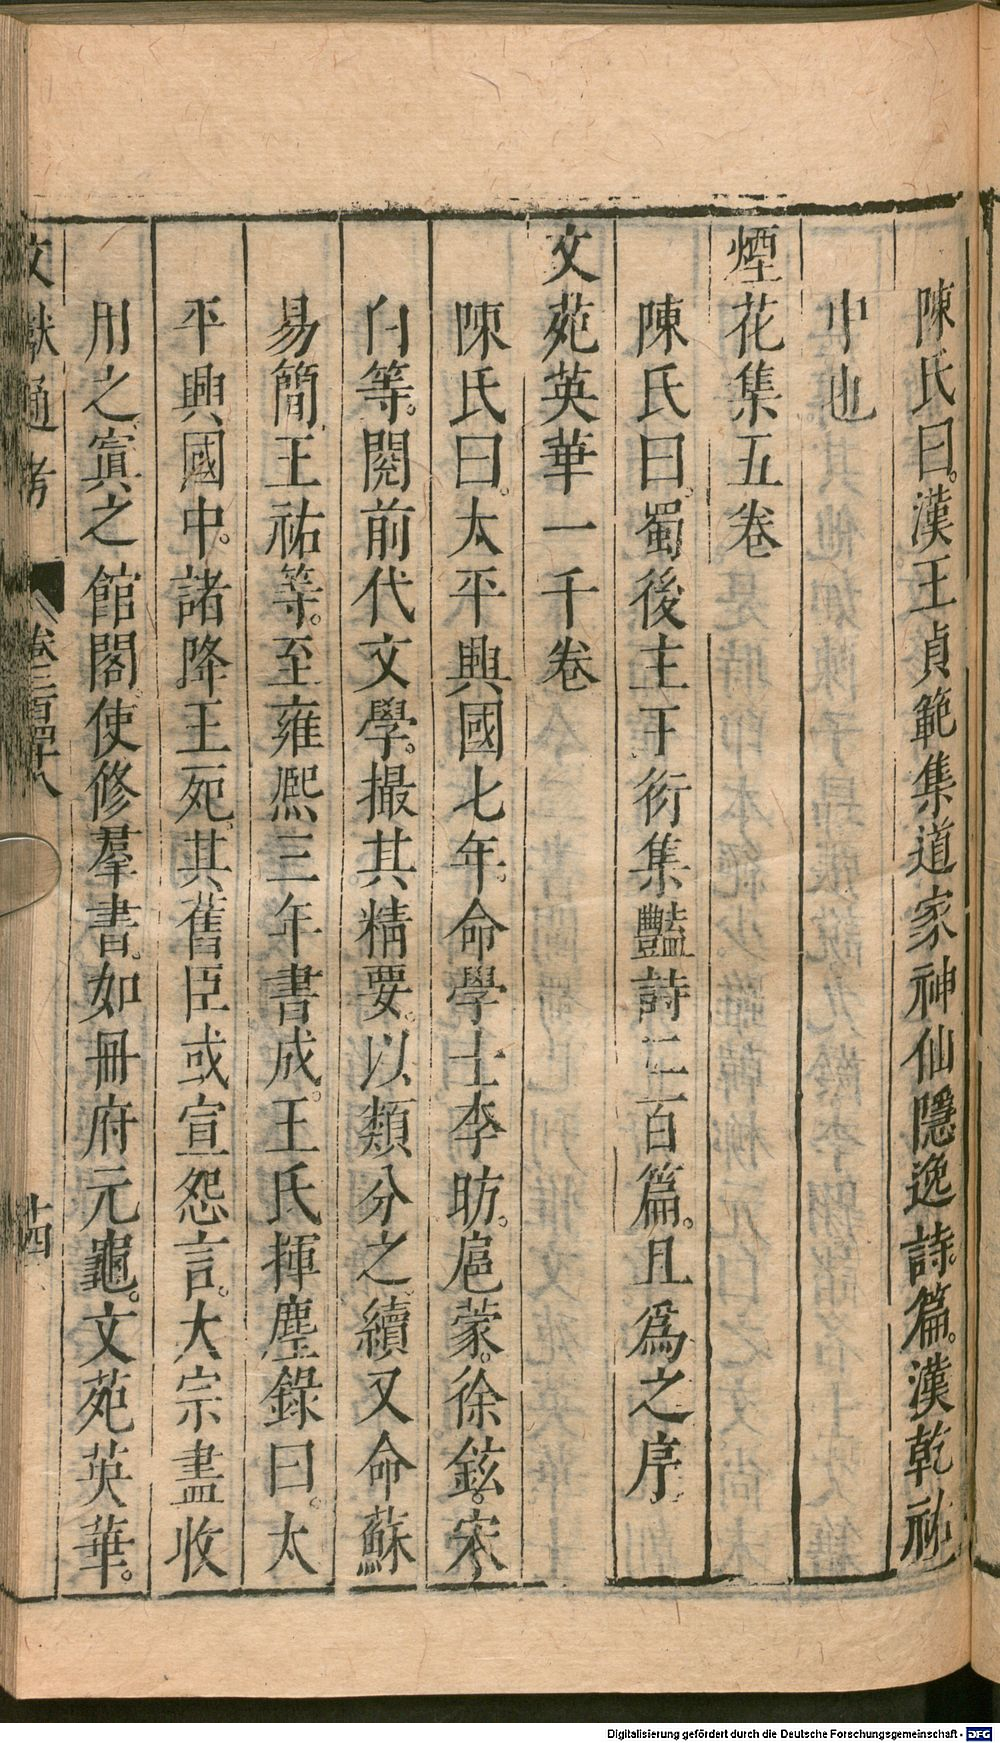 陳氏曰。漢王貞範集道家神仙隱逸詩篇。漢乾祐
中也
煙花集五卷
陳氏曰。蜀後主王衍集豔詩二百篇。且爲之序。
文苑英華一千卷
陳氏曰。太平興國七年。命學士李昉。扈蒙。徐鉉。宋
白等。閱前代文學。撮其精要。以類分之。續又命蘇
易簡王祐等。至雍熙三年書成。王氏揮麈錄曰。太
平興國中。諸降王死。其舊臣或宣怨言。太宗盡收
用之。寘之館閣。使修羣書。如冊府元龜。文苑英華。
文獻通考 卷二百四十八 廿四
Digitalisierung gefördert durch die Deutsche Forschungsgemeinschaft - DFG